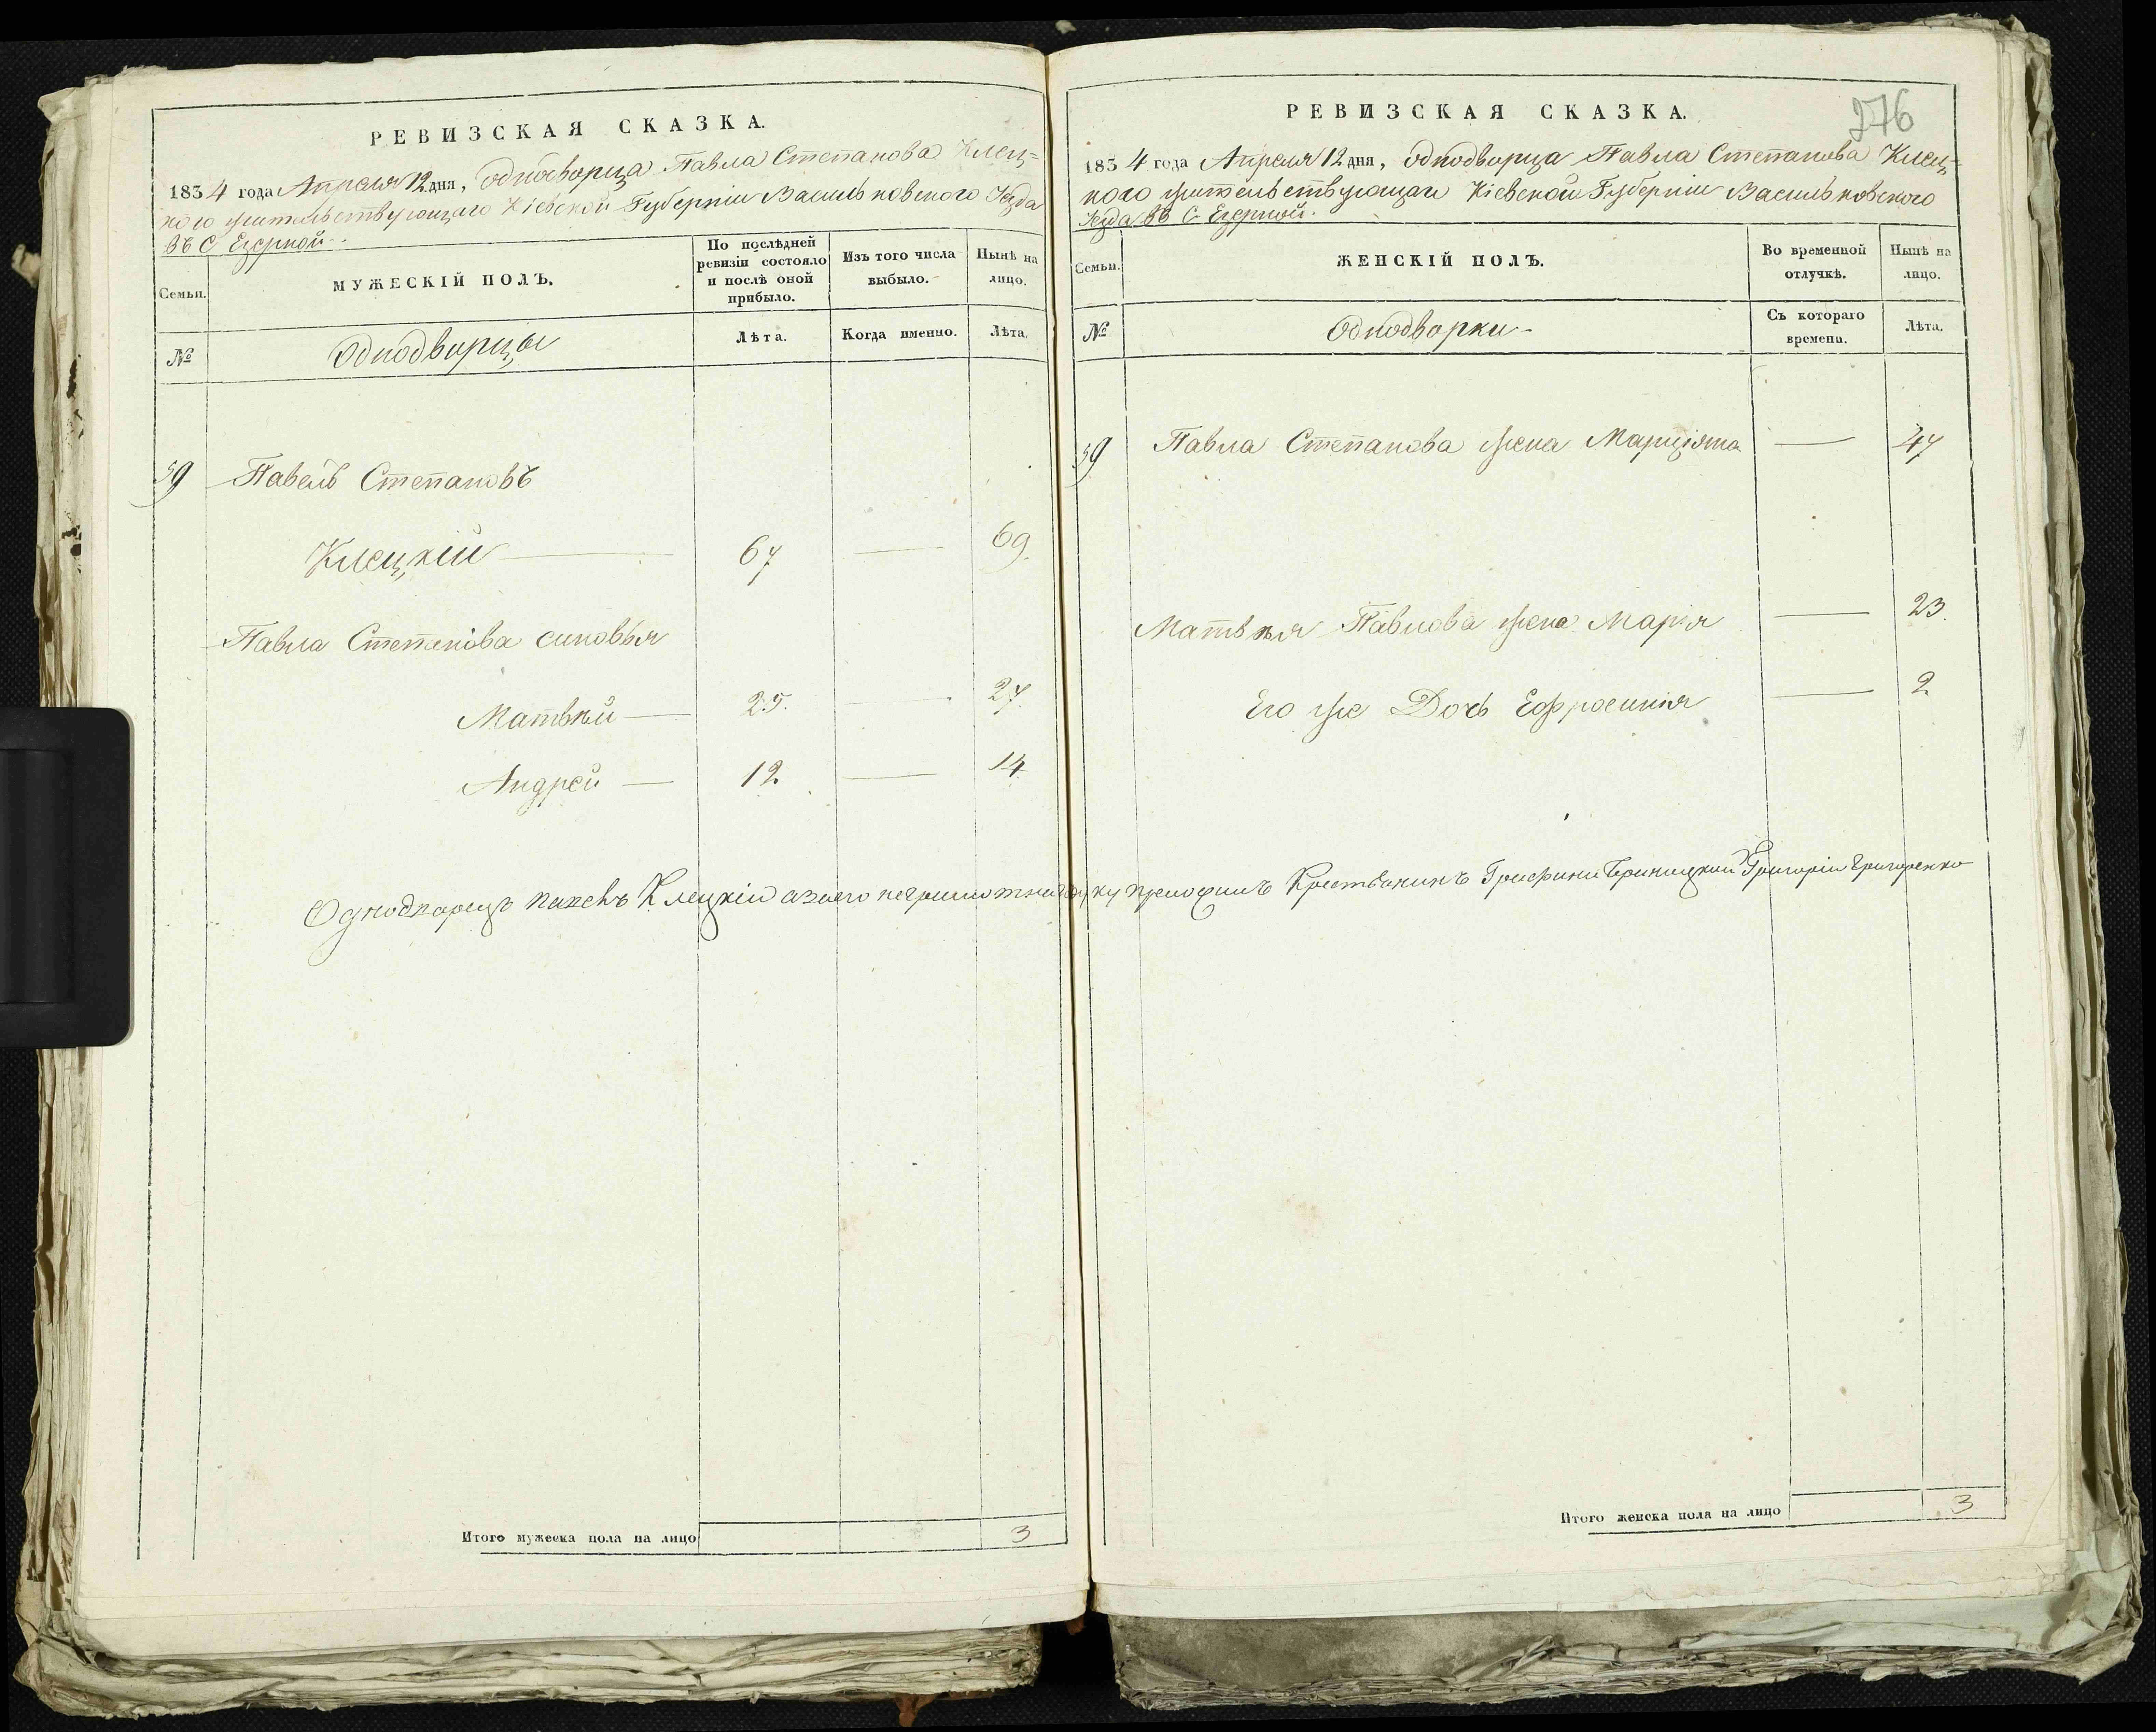 РЕВИЗСКАЯ СКАЗКА.
1834 года Апреля 12 дня, Однодворца Павла Степанова Клец=
кого жительствующаго Кіевской Губерніи Васильковского Уезда
въ С Езерной.
Семьи.
МУЖЕСКІЙ ПОЛЪ.
По послѣдней
ревизіи состояло
и послѣ оной
прибыло.
Изъ того числа
выбыло.
Нынѣ на
лицо.
№
Однодворцы
Лѣта.
Когда именно.
Лѣта.
59 Павелъ Степановъ
Клецкій — 67 — 69.
Павла Степанова синовья
Матвѣй — 25. — 27.
Андрей — 12 — 14
Однодворецъ Клецкій
Итого мужеска пола на лицо 3
276
РЕВИЗСКАЯ СКАЗКА.
1834 года Апреля 12 дня, Однодворца Павла Степанова Клец=
кого жительствующаго Кіевской Губерніи Васильковского
Уезда въ С. Езерной.
Семьи.
ЖЕНСКІЙ ПОЛЪ.
Во временной
отлучкѣ.
Нынѣ на
лицо.
№
Однодворки
Съ котораго
времени.
Лѣта.
59 Павла Степанова жена Марціяна — 47
Матвѣя Павлова жена Марія — 23.
Его же Дочь Ефросинія — 2
руку приложилъ Крестьянинъ Григорій Григоренко
Итого женска пола на лицо 3